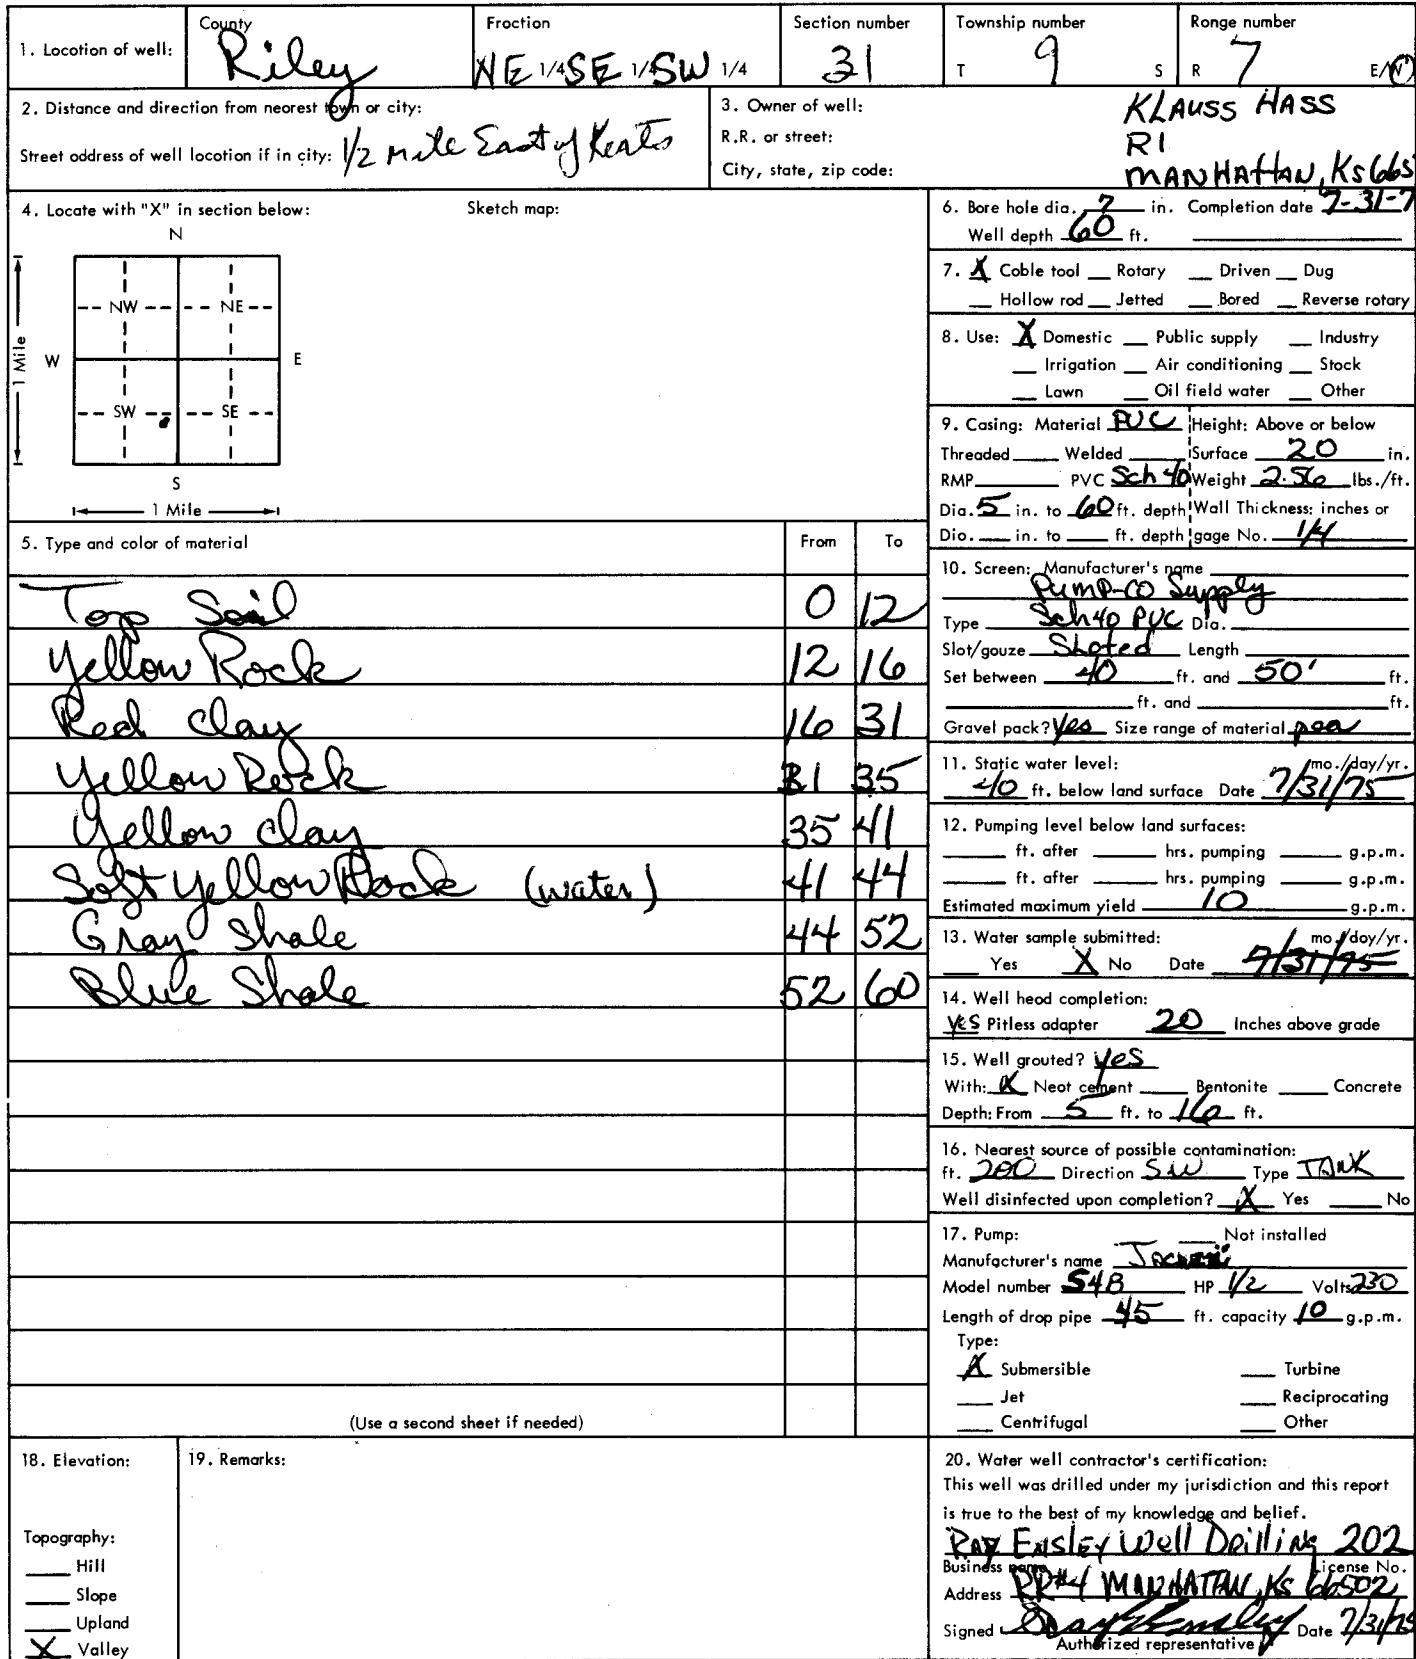 1. Location of well:
County
Riley
Fraction
NE 1/4 SE 1/4 SW 1/4
Section number
31
Township number
T 9 S
Range number
R 7 E/W
2. Distance and direction from nearest town or city:
Street address of well location if in city: 1/2 mile East of Keats
3. Owner of well: KLAUSS HASS
R.R. or street: R1
City, state, zip code: MANHATTAN, Ks 665
4. Locate with "X" in section below: Sketch map:
N
NW NE
W E
1 Mile
SW SE
S
1 Mile
5. Type and color of material From To
Top Soil 0 12
Yellow Rock 12 16
Red clay 16 31
Yellow Rock 31 35
Yellow clay 35 41
Soft Yellow Rock (water) 41 44
Gray Shale 44 52
Blue Shale 52 60
(Use a second sheet if needed)
6. Bore hole dia. 7 in. Completion date 7-31-7
Well depth 60 ft.
7. X Cable tool Rotary Driven Dug
Hollow rod Jetted Bored Reverse rotary
8. Use: X Domestic Public supply Industry
Irrigation Air conditioning Stock
Lawn Oil field water Other
9. Casing: Material PVC Height: Above or below
Threaded Welded Surface 20 in.
RMP PVC Sch 40 Weight 2.56 lbs./ft.
Dia. 5 in. to 60 ft. depth Wall Thickness: inches or
Dia. in. to ft. depth gage No. 1/4
10. Screen: Manufacturer's name
Pump-co Supply
Type Sch 40 PVC Dia.
Slot/gauze Sloted Length
Set between 40 ft. and 50' ft.
ft. and ft.
Gravel pack? Yes Size range of material pea
11. Static water level: mo./day/yr.
40 ft. below land surface Date 7/31/75
12. Pumping level below land surfaces:
ft. after hrs. pumping g.p.m.
ft. after hrs. pumping g.p.m.
Estimated maximum yield 10 g.p.m.
13. Water sample submitted: mo./day/yr.
Yes X No Date 7/31/75
14. Well head completion:
YES Pitless adapter 20 Inches above grade
15. Well grouted? yes
With: X Neat cement Bentonite Concrete
Depth: From 5 ft. to 16 ft.
16. Nearest source of possible contamination:
ft. 200 Direction SW Type TANK
Well disinfected upon completion? X Yes No
17. Pump: Not installed
Manufacturer's name
Model number S4B HP 1/2 Volts 230
Length of drop pipe 45 ft. capacity 10 g.p.m.
Type:
X Submersible Turbine
Jet Reciprocating
Centrifugal Other
18. Elevation:
Topography:
Hill
Slope
Upland
X Valley
19. Remarks:
20. Water well contractor's certification:
This well was drilled under my jurisdiction and this report
is true to the best of my knowledge and belief.
Ray Ensley Well Drilling 202
Business name License No.
Address RR#4 MANHATTAN, Ks 66502
Signed Ray Ensley Date 7/31/75
Authorized representative